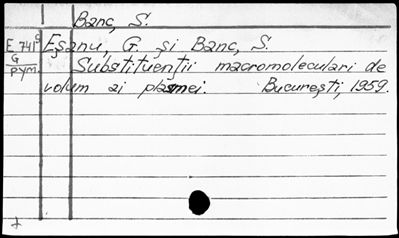 Banc, S.
E 741c Eşanu, G. şi Banc, S.
G Substituenţii macromoleculari de
pym. volum ai plasmei. Bucureşti, 1959.